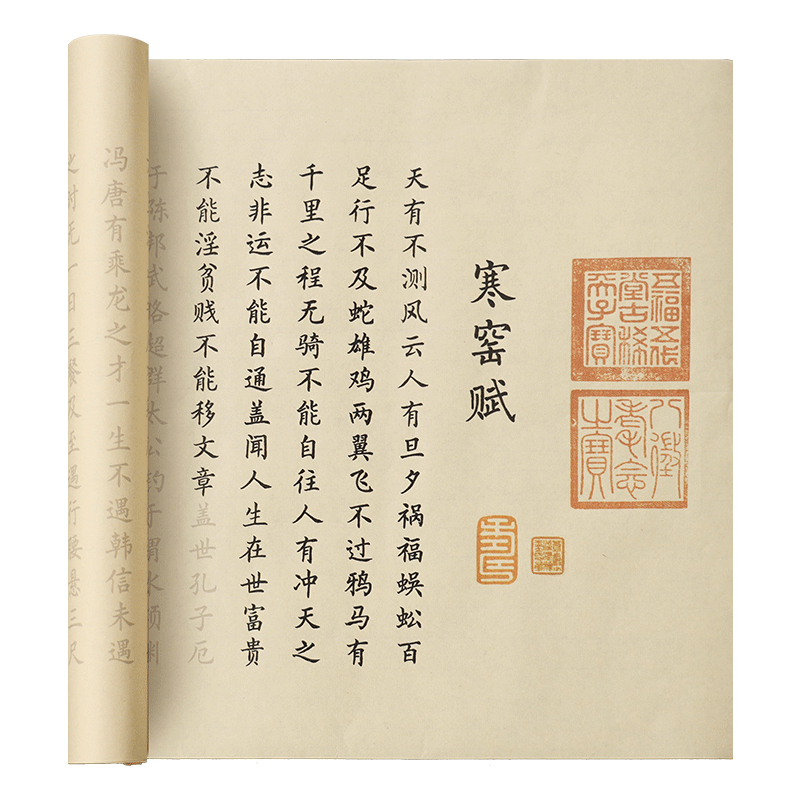 五福五代
堂古稀
天子寶
八徵
耄念
之寶
寒窑赋
天有不测风云人有旦夕祸福蜈蚣百
足行不及蛇雄鸡两翼飞不过鸦马有
千里之程无骑不能自往人有冲天之
志非运不能自通盖闻人生在世富贵
不能淫贫贱不能移文章盖世孔子厄
于陈邦武略超群太公钓于渭水颜渊
冯唐有乘龙之才一生不遇韩信未遇
之时无一日三餐及至遇行腰悬三尺